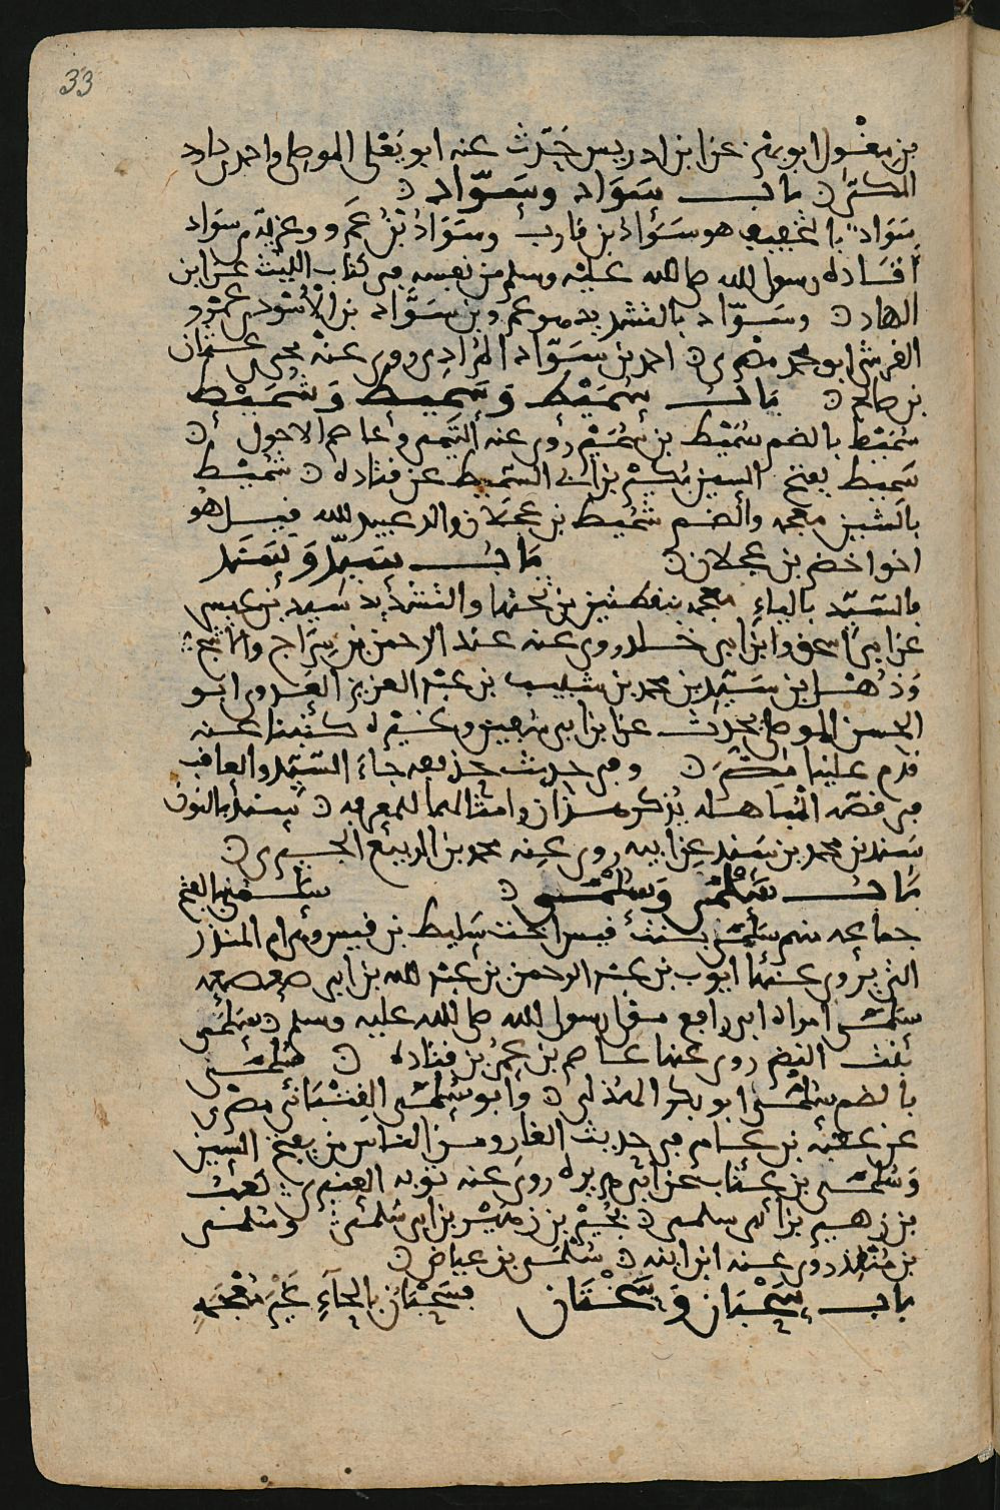 33
بن مغول ابو يزيد عن ابن ادريس حدث عنه ابو يعلى الموصلي واحمد بن داود
المكي ۞ باب سَوَاد وسَوّاد ۞
سَوَادٌ بالتخفيف هو سَوَادُ بن قارب وسَوَادُ بنُ عَمرو وغزية بن سواد
أقاده رسول الله صلى الله عليه وسلم من نفسه في كتاب الليث عن ابن
الهاد ۞ وسَوّاد بالتشديد هو عمرو بن سَوَّاد بن الأسْود بن عمرو
القرشي ابو محمد مصري ۞ احمد بن سَوّاد المرادي روى عنه يحيى بن عثمان
بن صالح ۞ باب سُمَيْط وَسَمِيط وَشُمَيْط
سُمَيْط بالضم سُمَيْط بن سُمَيْر روى عنه التيمي وعاصم الاحول ۞
سَمِيط بفتح السين بكير بن ابي السَّمِيط عن قتاده ۞ شُمَيْط
بالشين معجمه والضم شُمَيط بن عجلان والد عبيد الله قيل هو
اخو اخضر بن عجلان ۞ بَاب سَيِّد وَسَنَد
فالسَّيّد بالياء معجمه بنقطتين من تحتها والتشديد سَيد بن عيسى
عن ابي اسحق وابن ابي خالد روى عنه عبد الرحمن بن سِرَاج والاشج
وَذُهْل بن سَيّد بن محمد بن شبيب بن عبد العزيز العَدوي ابو
الحسن الموصلي يحدث عن ابن ابي سَمينه وغيره كتبنا عنه
قَدِم علينا مِصْر ۞ وفي حديث حذيفه جاء السَّيّد والعاقب
في قصه المباهله يُذكر هذان وامثالهما للمعرفه ۞ سَنَد بالنون
سَنَد بن محمد بن سَنَد عن ابيه روى عنه محمد بن الربيع الجيزي ۞
بَاب سَلْمَى وَسُلْمَى ۞ سَلمى بالفتح
جماعه منهم سَلمى بنت قيس اخت سَليط بن قيس وهي ام المنذر
التي روى عنها ايوب بن عبد الرحمن بن عبد الله بن ابي صعصعه
سَلمى امراه ابي رافع مولى رسول الله صلى الله عليه وسلم ۞ سَلمَى
بنت النضر روى عنها عاصم بن عمر بن قتاده ۞ سُلْمَى
بالضم سُلْمى ابو بكر الهذلي ۞ وابو سُلمى القتباني مصري
عن عقبه بن عامر في حديث الغار ومن الناس من يفتح السين
وَسُلمى بن عتاب عن ابي هريره روى عنه توبه العنبري كعب
بن زهير بن ابي سلمى ۞ بجير بن زهير بن ابي سُلمى وسُلمى
بن منقذ روى عنه ابن ابنه ۞ سُلمى بن عياض ۞
باب سَحْبَان وَسَخْتَان فسَحْبَان بالحاءِ غَيْر مُعْجَمَه